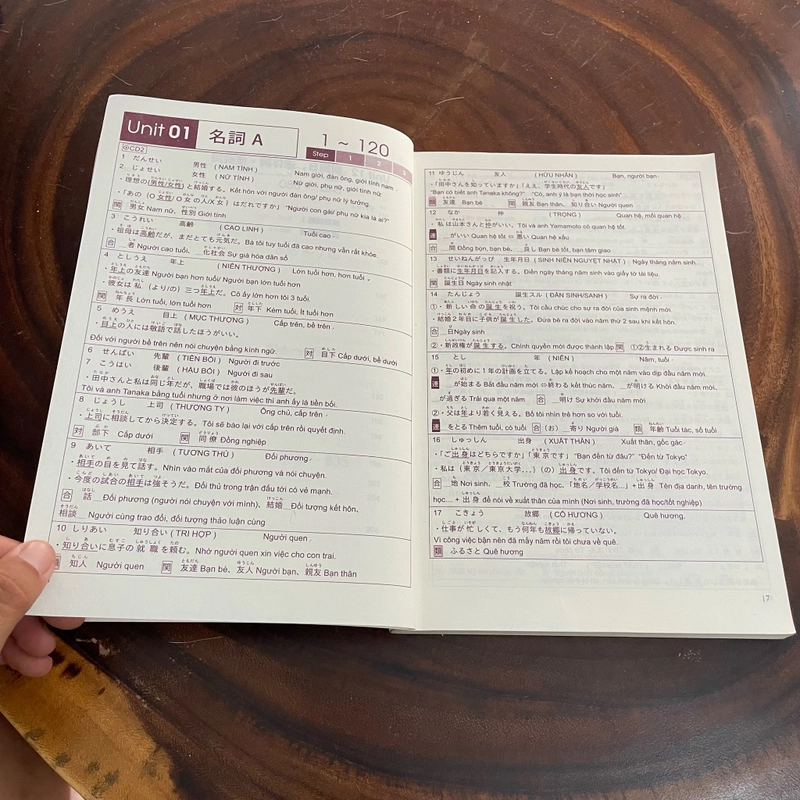 Unit 01 名詞 A 1 ~ 120
Step 1 2 3
@CD2
1 だんせい 男性 (NAM TÍNH) Nam giới, đàn ông, giới tính nam
2 じょせい 女性 (NỮ TÍNH) Nữ giới, phụ nữ, giới tính nữ
・理想の(男性/女性)と結婚する。Kết hôn với người đàn ông/ phụ nữ lý tưởng.
・「あの(○女性/○女の人/×女)はだれですか」 "Người con gái/ phụ nữ kia là ai?"
関 男女 Nam nữ, 性別 Giới tính
3 こうれい 高齢 (CAO LINH) Tuổi cao
・祖母は高齢だが、まだとても元気だ。Bà tôi tuy tuổi đã cao nhưng vẫn rất khỏe.
合 __者 Người cao tuổi, __化社会 Sự già hóa dân số
4 としうえ 年上 (NIÊN THƯỢNG) Lớn tuổi hơn, hơn tuổi
・年上の友達 Người bạn hơn tuổi/ Người bạn lớn tuổi hơn
・彼女は私(より/の)三つ年上だ。Cô ấy lớn hơn tôi 3 tuổi.
関 年長 Lớn tuổi, lớn tuổi hơn 対 年下 Kém tuổi, ít tuổi hơn
5 めうえ 目上 (MỤC THƯỢNG) Cấp trên, bề trên
・目上の人には敬語で話したほうがいい。
Đối với người bề trên nên nói chuyện bằng kính ngữ. 対 目下 Cấp dưới, bề dưới
6 せんぱい 先輩 (TIỀN BỐI) Người đi trước
7 こうはい 後輩 (HẬU BỐI) Người đi sau
・田中さんと私は同じ年だが、職場では彼のほうが先輩だ。
Tôi và anh Tanaka bằng tuổi nhưng ở nơi làm việc thì anh ấy là tiền bối.
8 じょうし 上司 (THƯỢNG TY) Ông chủ, cấp trên
・上司に相談してから決定する。Tôi sẽ báo lại với cấp trên rồi quyết định.
対 部下 Cấp dưới 関 同僚 Đồng nghiệp
9 あいて 相手 (TƯƠNG THỦ) Đối phương
・相手の目を見て話す。Nhìn vào mắt của đối phương và nói chuyện.
・今度の試合の相手は強そうだ。Đối thủ trong trận đấu tới có vẻ mạnh.
合 話__ Đối phương (người nói chuyện với mình)、結婚__ Đối tượng kết hôn,
相談__ Người cùng trao đổi, đối tượng thảo luận cùng
10 しりあい 知り合い (TRI HỢP) Người quen
・知り合いに息子の就職を頼む。Nhờ người quen xin việc cho con trai.
類 知人 Người quen 関 友達 Bạn bè、友人 Người bạn、親友 Bạn thân
11 ゆうじん 友人 (HỮU NHÂN) Bạn, người bạn
・「田中さんを知っていますか」「ええ、学生時代の友人です」
"Bạn có biết anh Tanaka không?" "Có, anh ý là bạn thời học sinh"
類 友達 Bạn bè 関 親友 Bạn thân、知り合い Người quen
12 なか 仲 (TRỌNG) Quan hệ, mối quan hệ
・私は山本さんと仲がいい。Tôi và anh Yamamoto có quan hệ tốt.
連 __がいい Quan hệ tốt ⇔ 悪い Quan hệ xấu
合 __間 Đồng bọn, bạn bè、__良し Bạn bè tốt, bạn tâm giao
13 せいねんがっぴ 生年月日 (SINH NIÊN NGUYỆT NHẬT) Ngày tháng năm sinh
・書類に生年月日を記入する。Điền ngày tháng năm sinh vào giấy tờ tài liệu.
関 誕生日 Ngày sinh nhật
14 たんじょう 誕生スル (ĐẢN SINH/SANH) Sự ra đời
①・新しい命の誕生を祝う。Tôi cầu chúc cho sự ra đời của sinh mệnh mới.
・結婚2年目に子供が誕生した。Đứa bé ra đời vào năm thứ 2 sau khi kết hôn.
合 __日 Ngày sinh
②・新政権が誕生する。Chính quyền mới được thành lập 関 ①②生まれる Được sinh ra
15 とし 年 (NIÊN) Năm, tuổi
①・年の初めに1年の計画を立てる。Lập kế hoạch cho một năm vào dịp đầu năm mới.
連 __が始まる Bắt đầu năm mới ⇔ 終わる kết thúc năm、__が明ける Khởi đầu năm mới,
__が過ぎる Trải qua một năm 合 __明け Sự khởi đầu năm mới
②・父は年より若く見える。Bố tôi nhìn trẻ hơn so với tuổi.
連 __をとる Thêm tuổi, có tuổi 合 (お)__寄り Người già 類 年齢 Tuổi tác, số tuổi
16 しゅっしん 出身 (XUẤT THÂN) Xuất thân, gốc gác
・「ご出身はどちらですか」「東京です」 "Bạn đến từ đâu?" "Đến từ Tokyo"
・私は(東京/東京大学…)(の)出身です。Tôi đến từ Tokyo/ Đại học Tokyo.
合 __地 Nơi sinh、__校 Trường đã học,「地名/学校名…」+ 出身 Tên địa danh, tên trường
học… + 出身 để nói về xuất thân của mình (Nơi sinh, trường đã học/tốt nghiệp)
17 こきょう 故郷 (CỐ HƯƠNG) Quê hương
・仕事が忙しくて、もう何年も故郷に帰っていない。
Vì công việc bận nên đã mấy năm rồi tôi chưa về quê.
類 ふるさと Quê hương
17